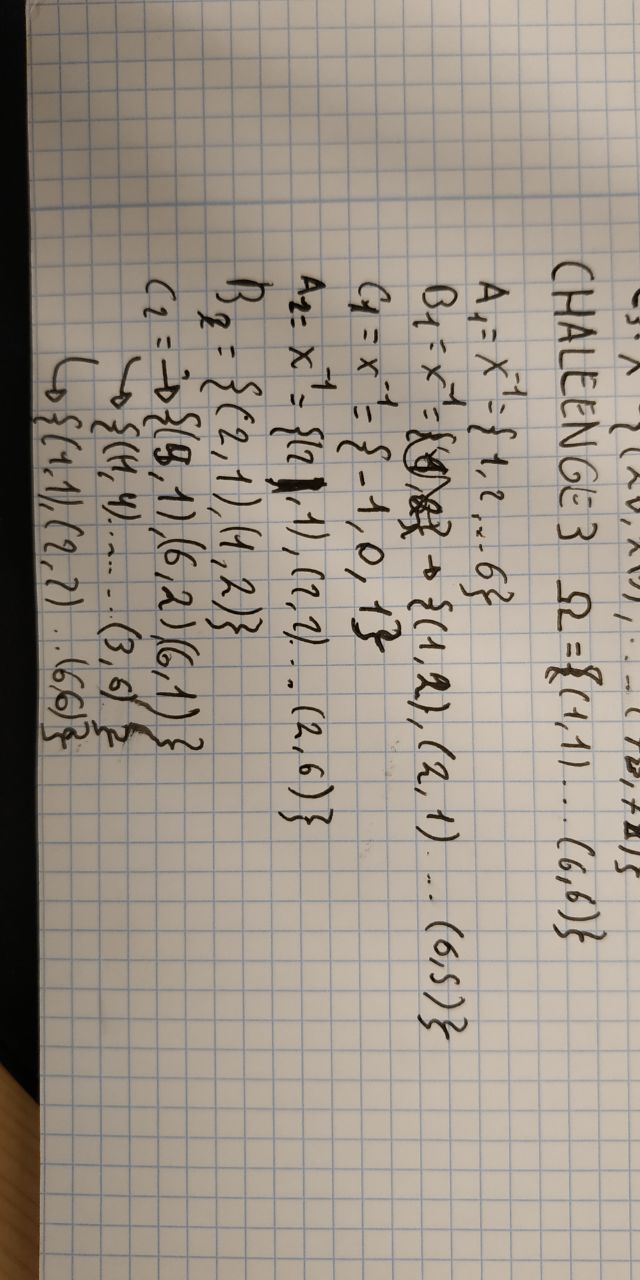 CHALEENGE 3 Ω = {(1,1)...(6,6)}
A₁ = X⁻¹ = {1,2,...6}
B₁ = X⁻¹ = → {(1,2),(2,1)...(6,5)}
C₁ = X⁻¹ = {-1,0,1}
A₂ = X⁻¹ = {(2,1),(2,2)...(2,6)}
B₂ = {(2,1),(1,2)}
C₂ = → {(5,1),(6,2)(6,1)}
↳ {(1,4)......(3,6)}
↳ {(1,1),(2,2)...(6,6)}